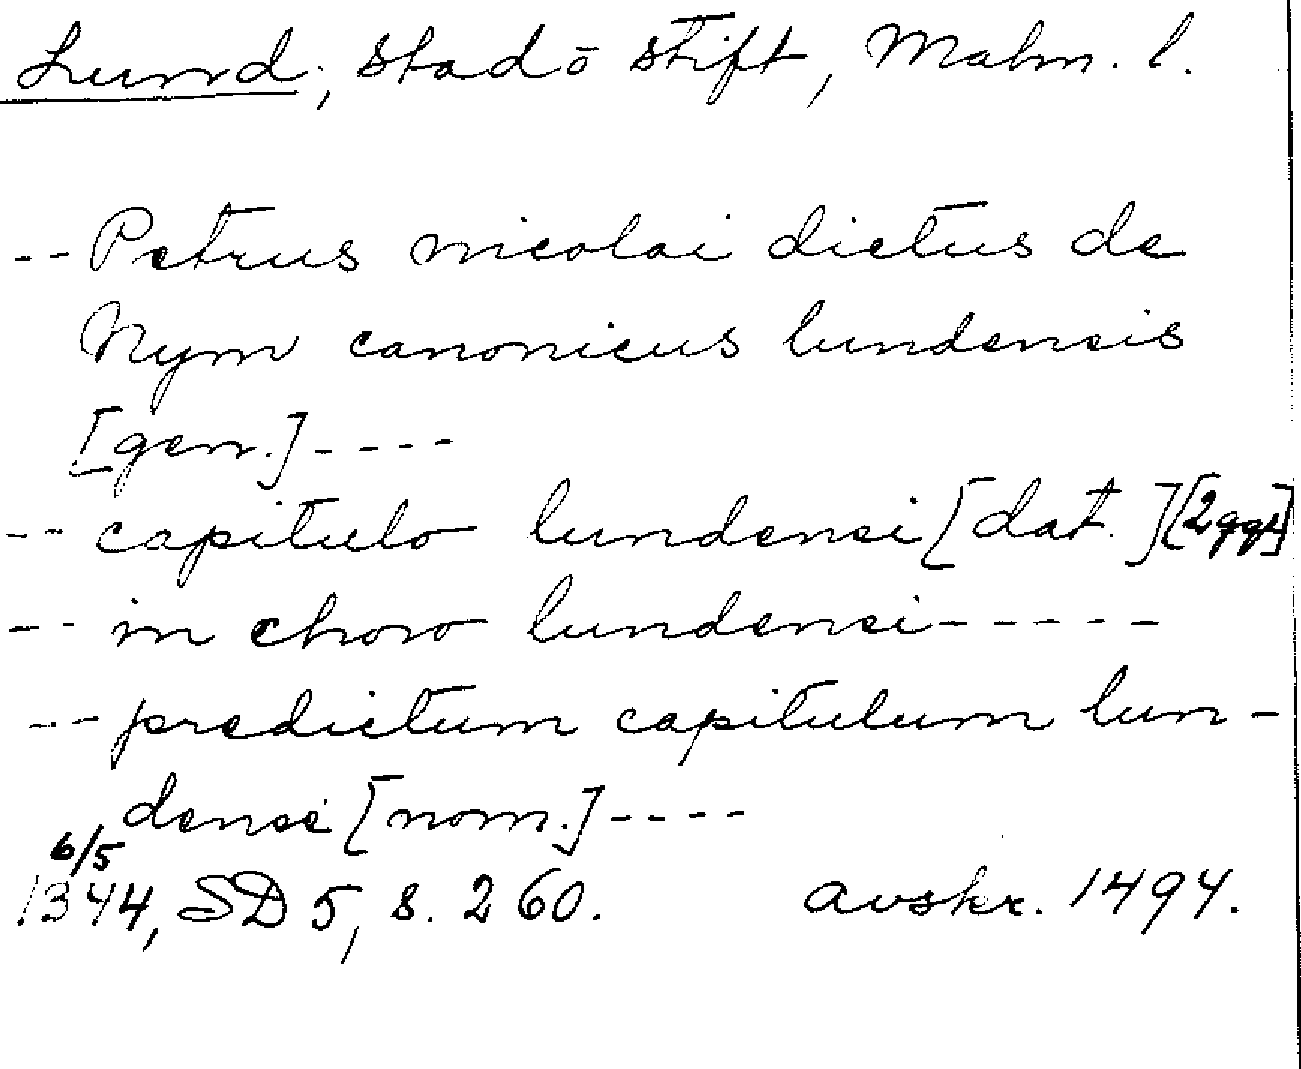 Lund, stad o stift, Malm. l.
-- Petrus nicolai dictus de
Nym canonicus lundensis
[gen.] ----
-- capitulo lundensi [dat.] [2 ggr]
-- in choro lundensi -----
-- predictum capitulum lun-
dense [nom.] ----
6/5
1344, SD 5, s. 260. avskr. 1494.